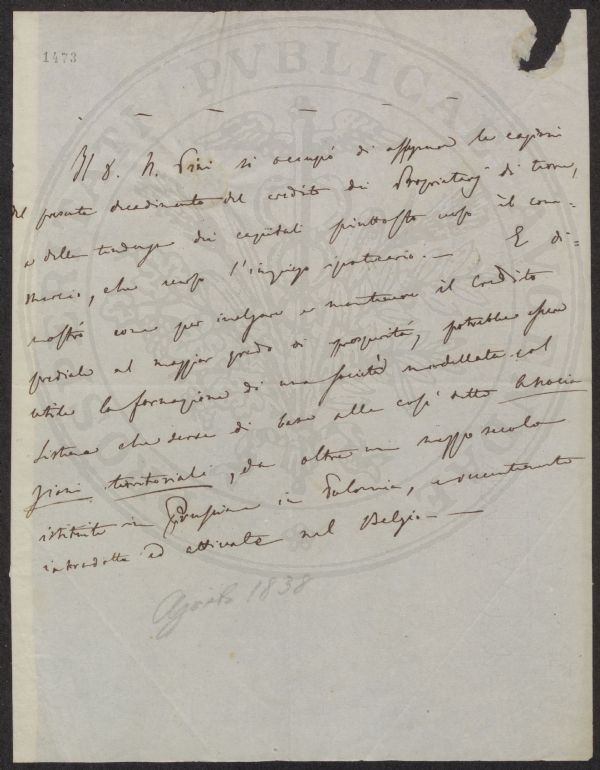 1473
Il S. N. Pini si occupò di assegnare le cagioni
del presente decadimento del credito dei Proprietarj di terre,
e della tendenza dei capitali piuttosto verso il com=
mercio, che verso l'impiego ipotecario. — E di=
mostrò come per inalzare e mantenere il credito
prediale al maggior grado di prosperità, potrebbe essere
utile la formazione di una società modellata sul
sistema che serve di base alle così dette Associa
zioni territoriali, da oltre un mezzo secolo
istituite in Prussia e in Polonia, e recentemente
introdotte ed attivate nel Belgio. —
Agosto 1838